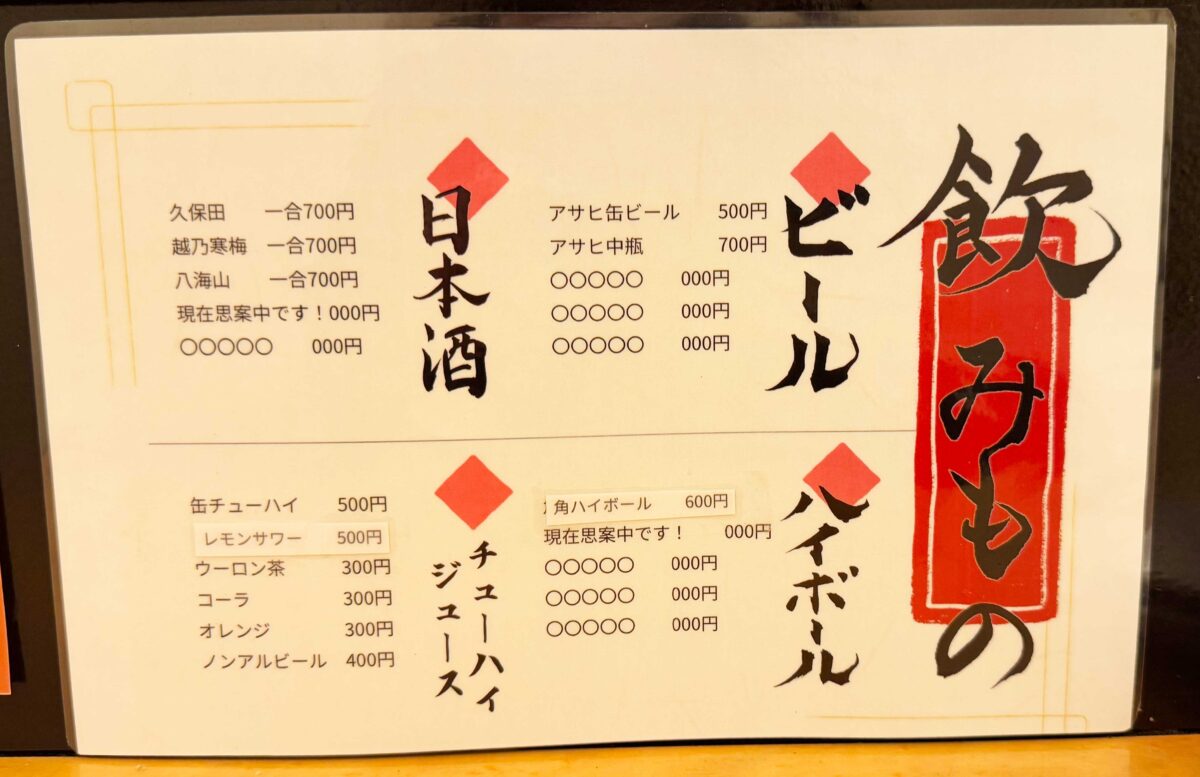 飲みもの
ビール
アサヒ缶ビール 500円
アサヒ中瓶 700円
○○○○○ 000円
○○○○○ 000円
○○○○○ 000円
日本酒
久保田 一合700円
越乃寒梅 一合700円
八海山 一合700円
現在思案中です!000円
○○○○○ 000円
ハイボール
角ハイボール 600円
現在思案中です! 000円
○○○○○ 000円
○○○○○ 000円
○○○○○ 000円
チューハイ
ジュース
缶チューハイ 500円
レモンサワー 500円
ウーロン茶 300円
コーラ 300円
オレンジ 300円
ノンアルビール 400円